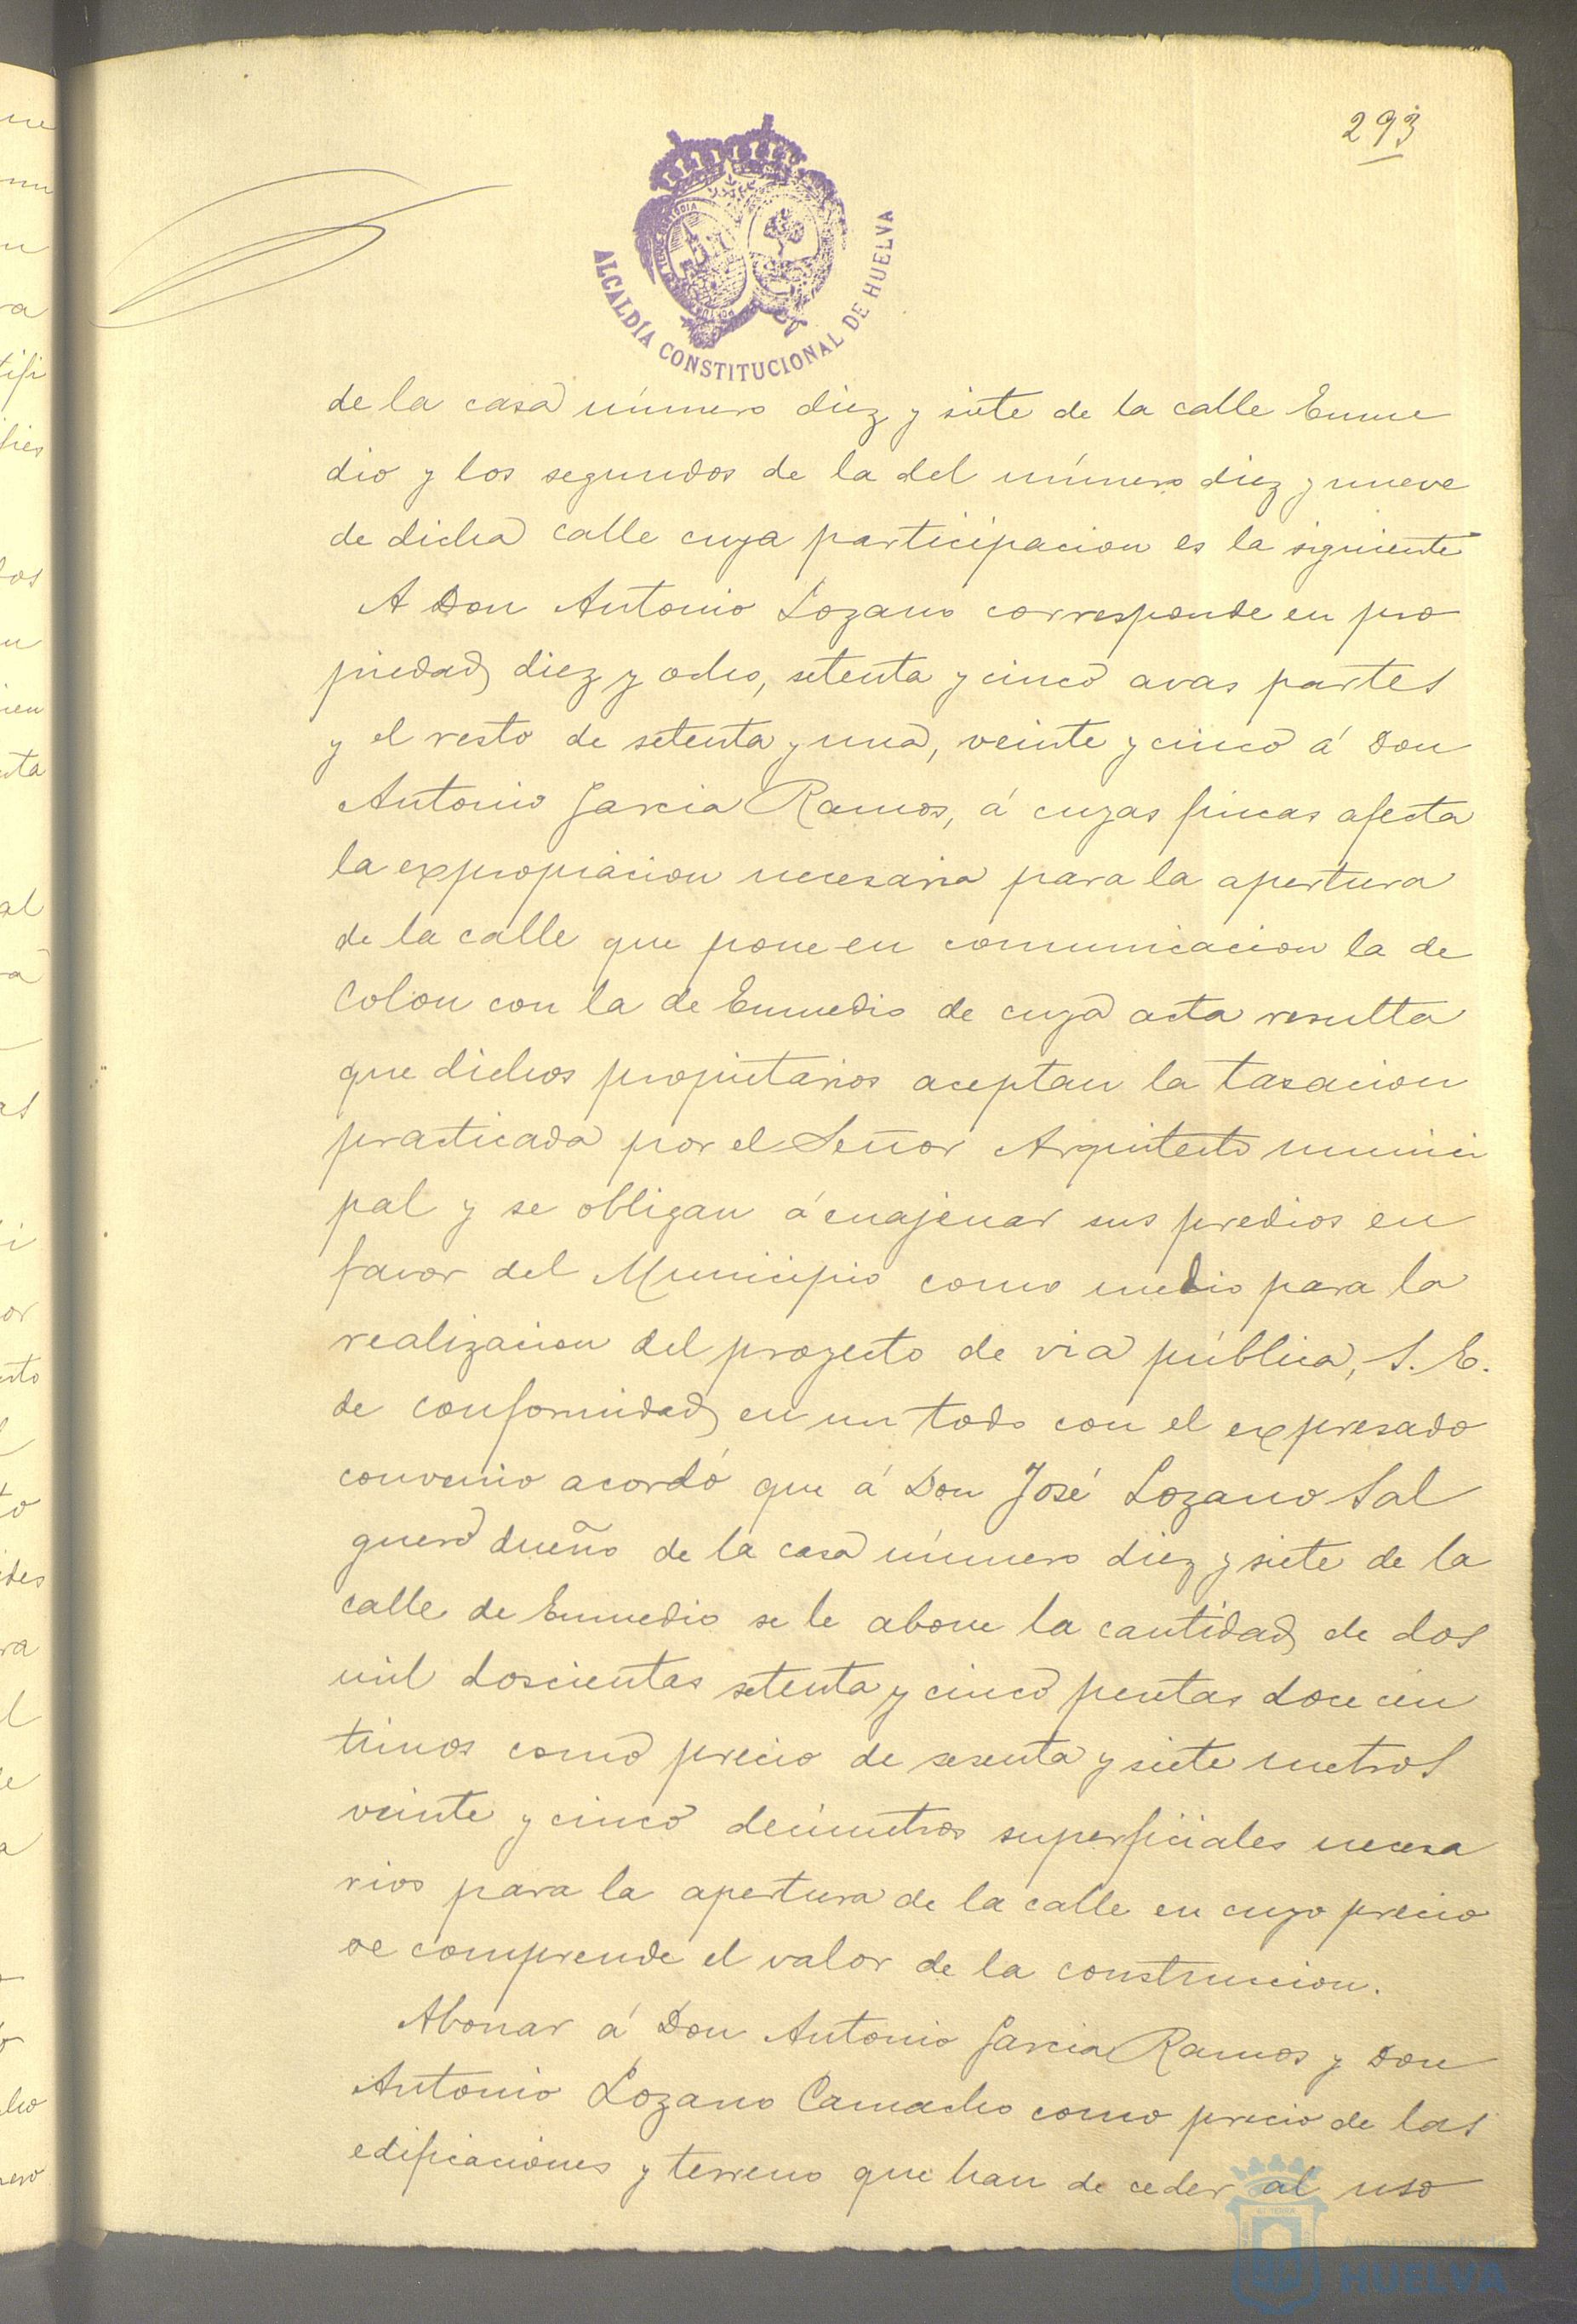 293
ALCALDÍA CONSTITUCIONAL DE HUELVA
de la casa número diez y siete de la calle Enme
dio y los segundos de la del número diez y nueve
de dicha calle cuya participacion es la siguiente
A Don Antonio Lozano corresponde en pro
piedad diez y ocho, setenta y cinco avas partes
y el resto de setenta y una, veinte y cinco á Don
Antonio Garcia Ramos, á cuyas fincas afecta
la expropiacion necesaria para la apertura
de la calle que pone en comunicacion la de
Colon con la de Enmedio de cuya acta resulta
que dichos propietarios aceptan la tasacion
practicada por el Señor Arquitecto munici
pal y se obligan á enajenar sus predios en
favor del Municipio como medio para la
realizacion del proyecto de via pública, S. E.
de conformidad en un todo con el expresado
convenio acordó que á Don José Lozano Sal
guero dueño de la casa número diez y siete de la
calle de Enmedio se le abone la cantidad de dos
mil doscientas setenta y cinco pesetas doce cén
timos como precio de sesenta y siete metros
veinte y cinco decimetros superficiales necesa
rios para la apertura de la calle en cuyo precio
se comprende el valor de la construccion.
Abonar á Don Antonio Garcia Ramos y Don
Antonio Lozano Camacho como precio de las
edificaciones y terreno que han de ceder al uso
HUELVA